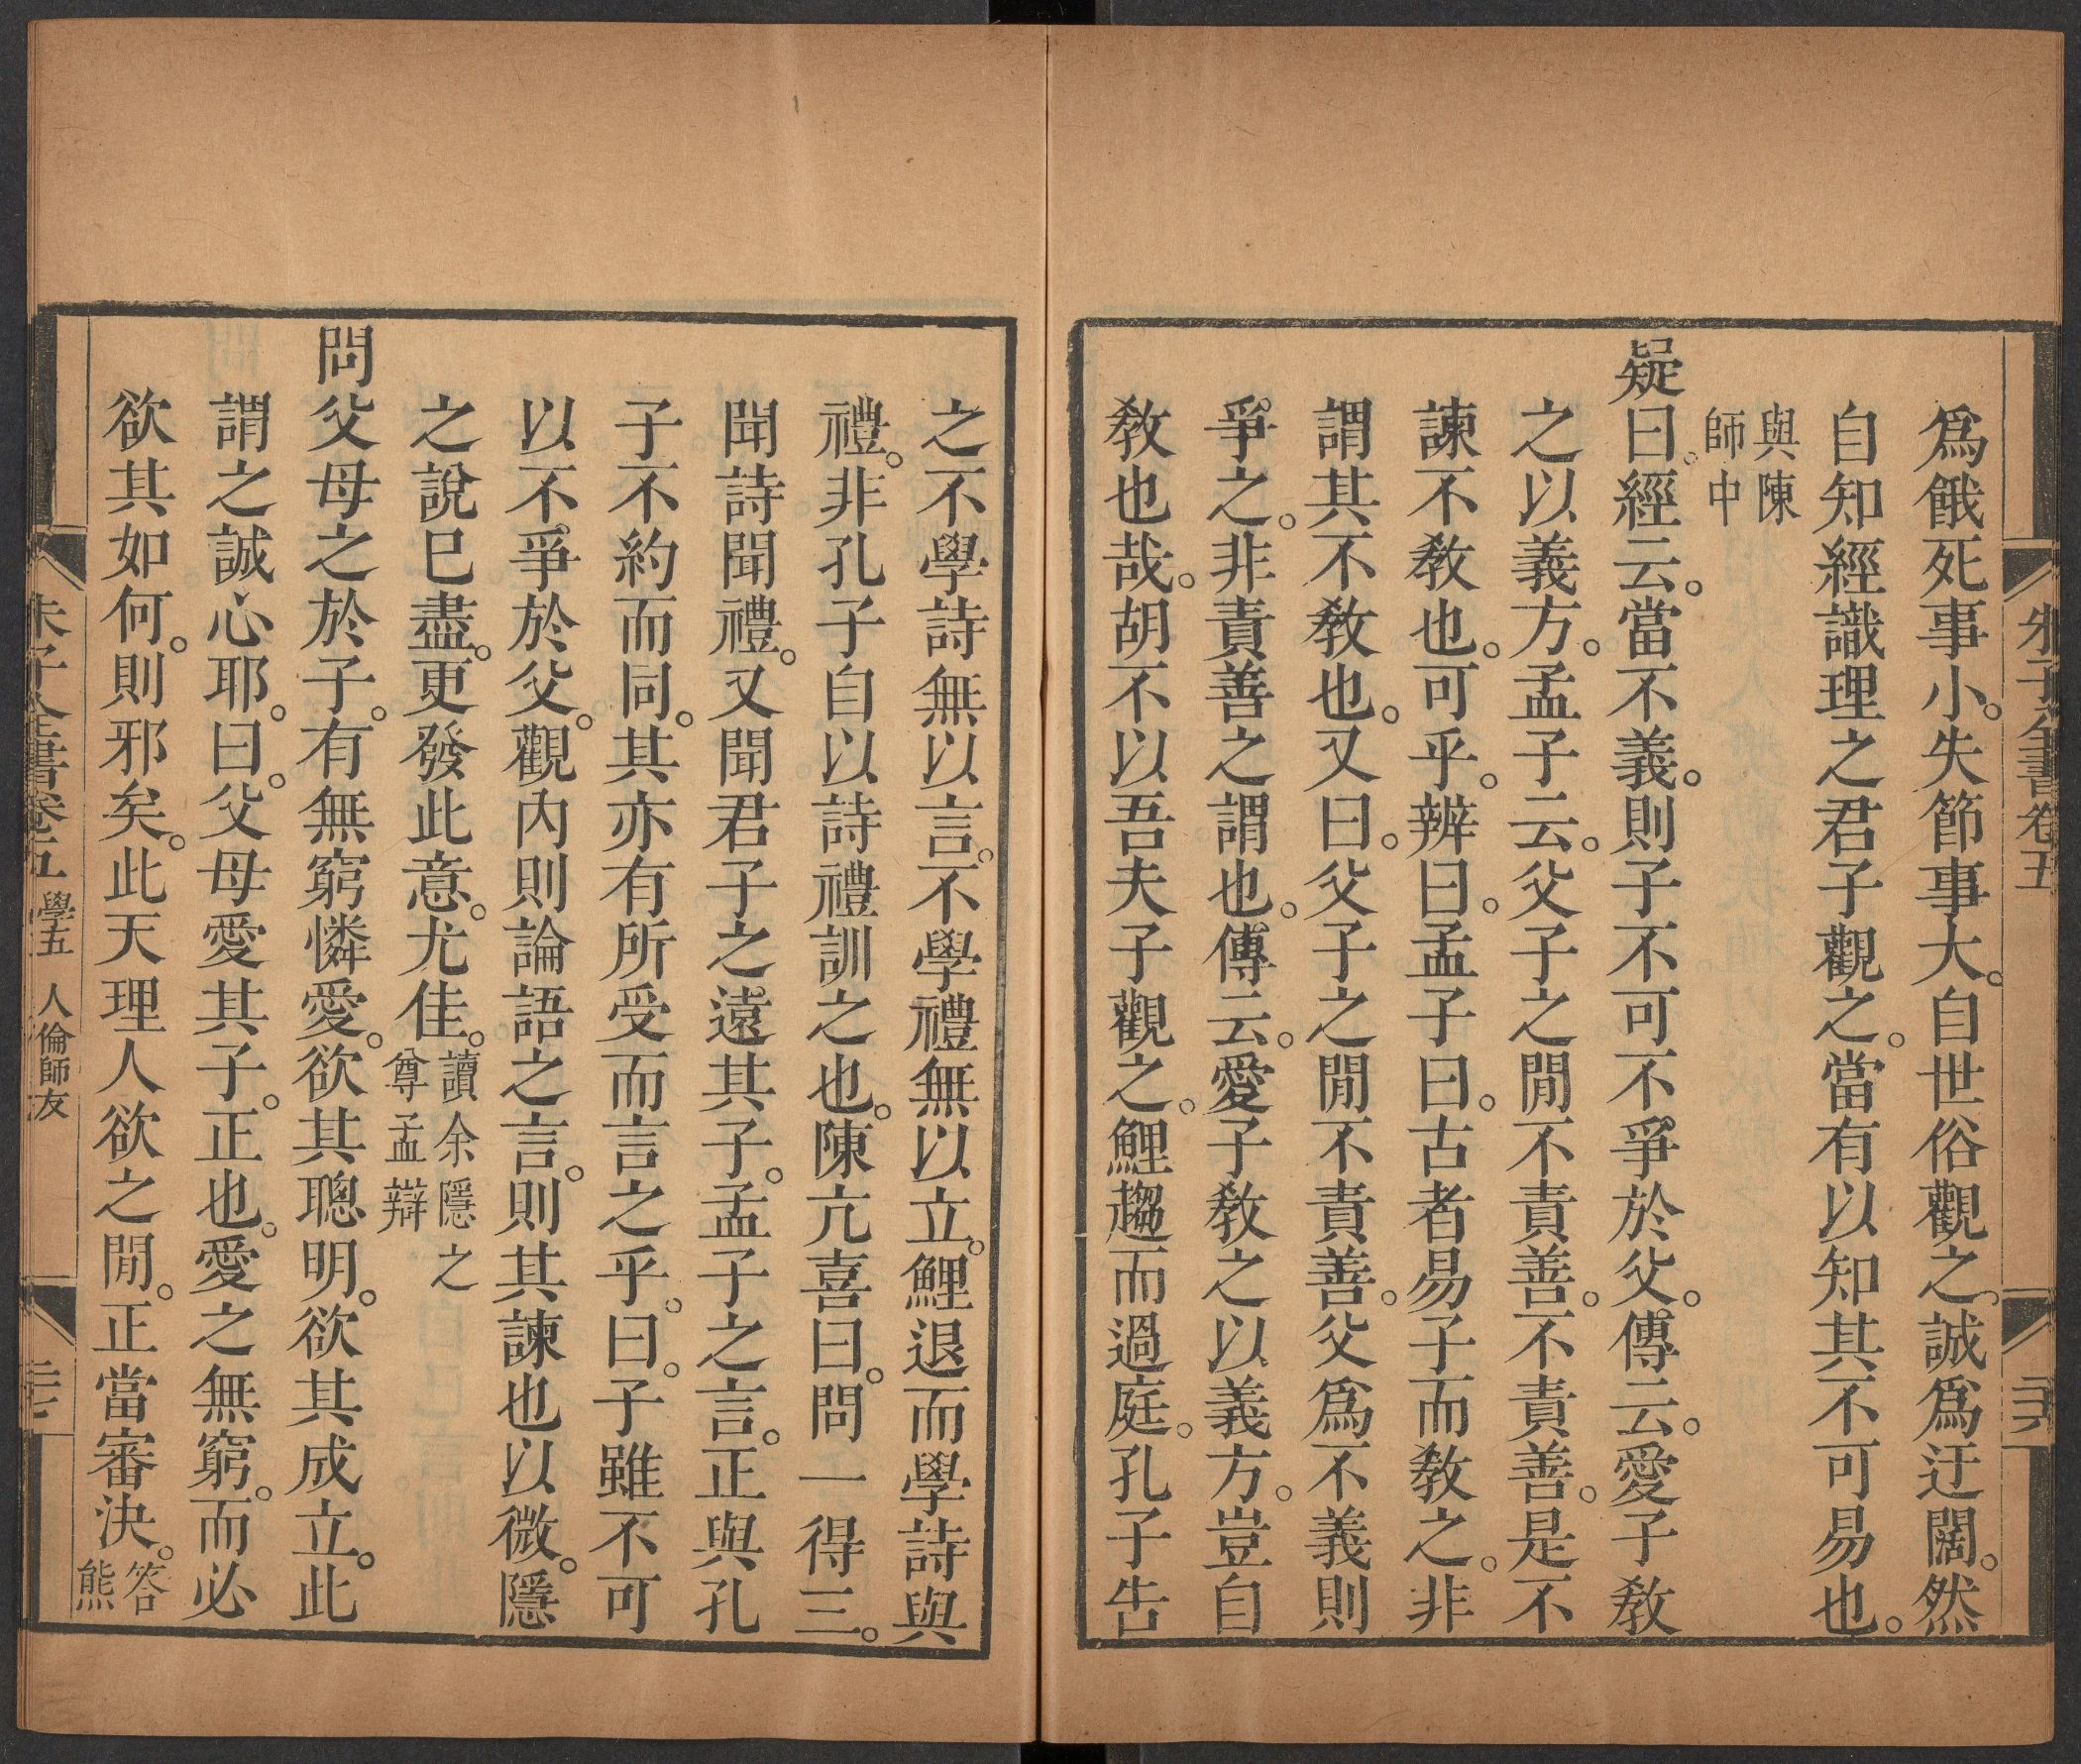 朱子全書卷五
二十六
爲餓死事小。失節事大。自世俗觀之。誠爲迂闊。然
自知經識理之君子觀之。當有以知其不可易也。
與陳
師中
疑曰。經云。當不義。則子不可不爭於父。傳云。愛子教
之以義方。孟子云。父子之閒不責善。不責善。是不
諫不教也。可乎。辨曰。孟子曰。古者易子而教之。非
謂其不教也。又曰。父子之閒不責善。父爲不義則
爭之。非責善之謂也。傳云。愛子教之以義方。豈自
教也哉。胡不以吾夫子觀之。鯉趨而過庭。孔子告
之不學詩無以言。不學禮無以立。鯉退而學詩與
禮。非孔子自以詩禮訓之也。陳亢喜曰。問一得三。
聞詩聞禮。又聞君子之遠其子。孟子之言。正與孔
子不約而同。其亦有所受而言之乎。曰。子雖不可
以不爭於父。觀內則論語之言。則其諫也以微。隱
之說已盡。更發此意。尤佳。讀余隱之
尊孟辯
問父母之於子。有無窮憐愛。欲其聰明。欲其成立。此
謂之誠心耶。曰。父母愛其子。正也。愛之無窮。而必
欲其如何。則邪矣。此天理人欲之閒。正當審決。答
熊
朱子全書卷五 學五 人倫師友
二十七